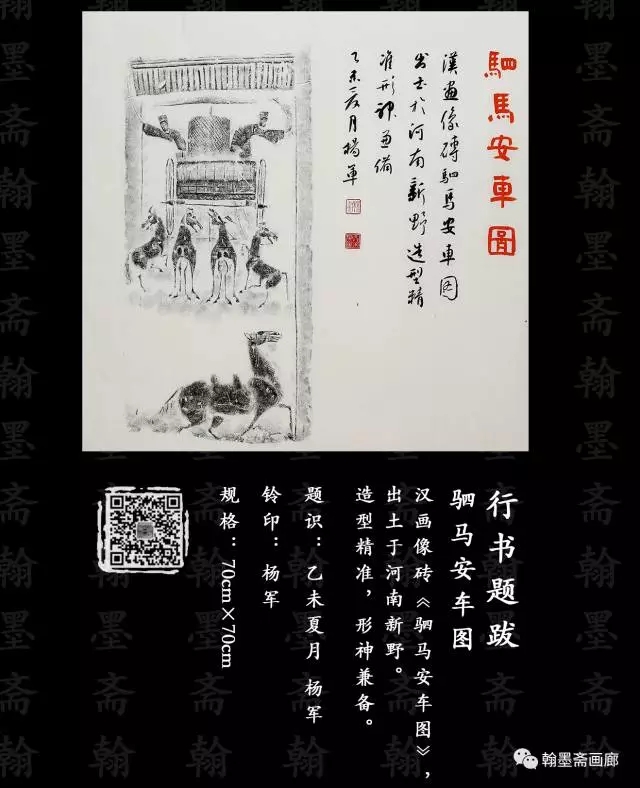 駟馬安車圖
漢畫像磚駟馬安車图
出土於河南新野造型精
准形神兼備
乙未夏月楊軍
行书题跋
驷马安车图
汉画像砖《驷马安车图》，
出土于河南新野。
造型精准，形神兼备。
题识：乙未夏月 杨军
铃印：杨军
规格：70cm×70cm
翰墨斋画廊
翰墨斋翰墨斋翰墨斋翰